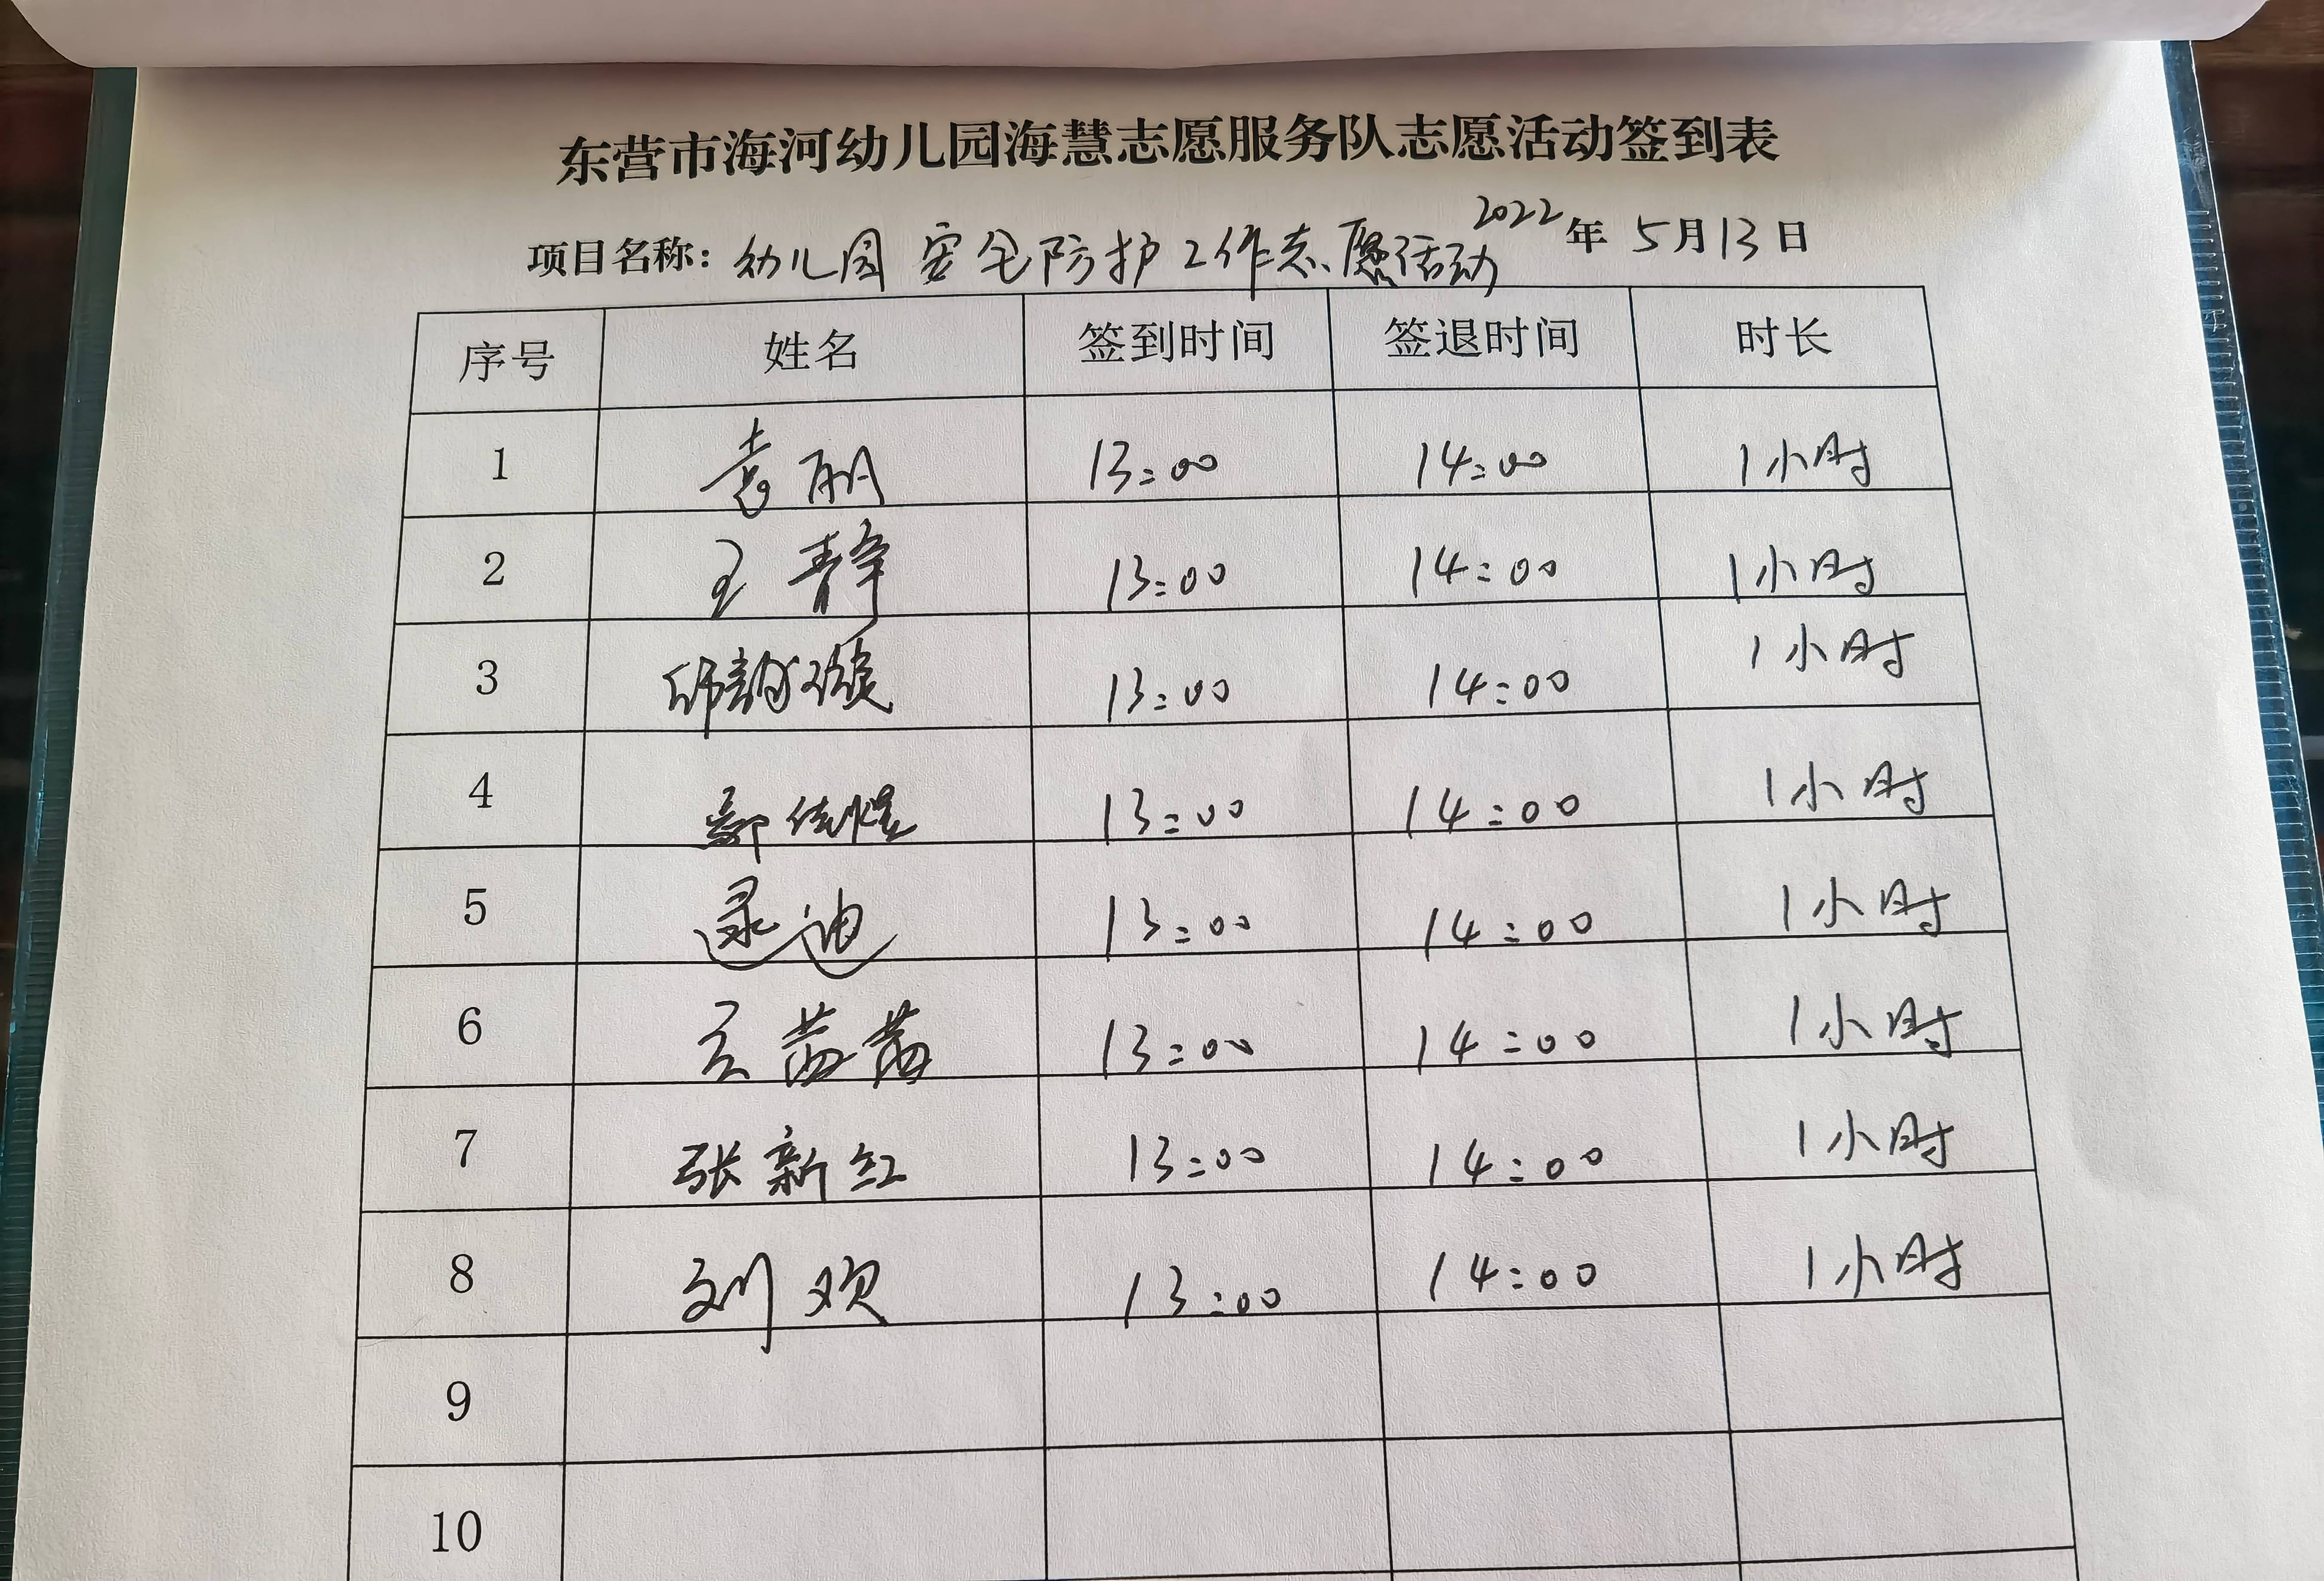 东营市海河幼儿园海慧志愿服务队志愿活动签到表
项目名称：幼儿园安全防护工作志愿活动 2022年5月13日
序号 姓名 签到时间 签退时间 时长
1 袁丽 13:00 14:00 1小时
2 王静 13:00 14:00 1小时
3 13:00 14:00 1小时
4 13:00 14:00 1小时
5 13:00 14:00 1小时
6 王茜茜 13:00 14:00 1小时
7 张新红 13:00 14:00 1小时
8 刘欢 13:00 14:00 1小时
9
10